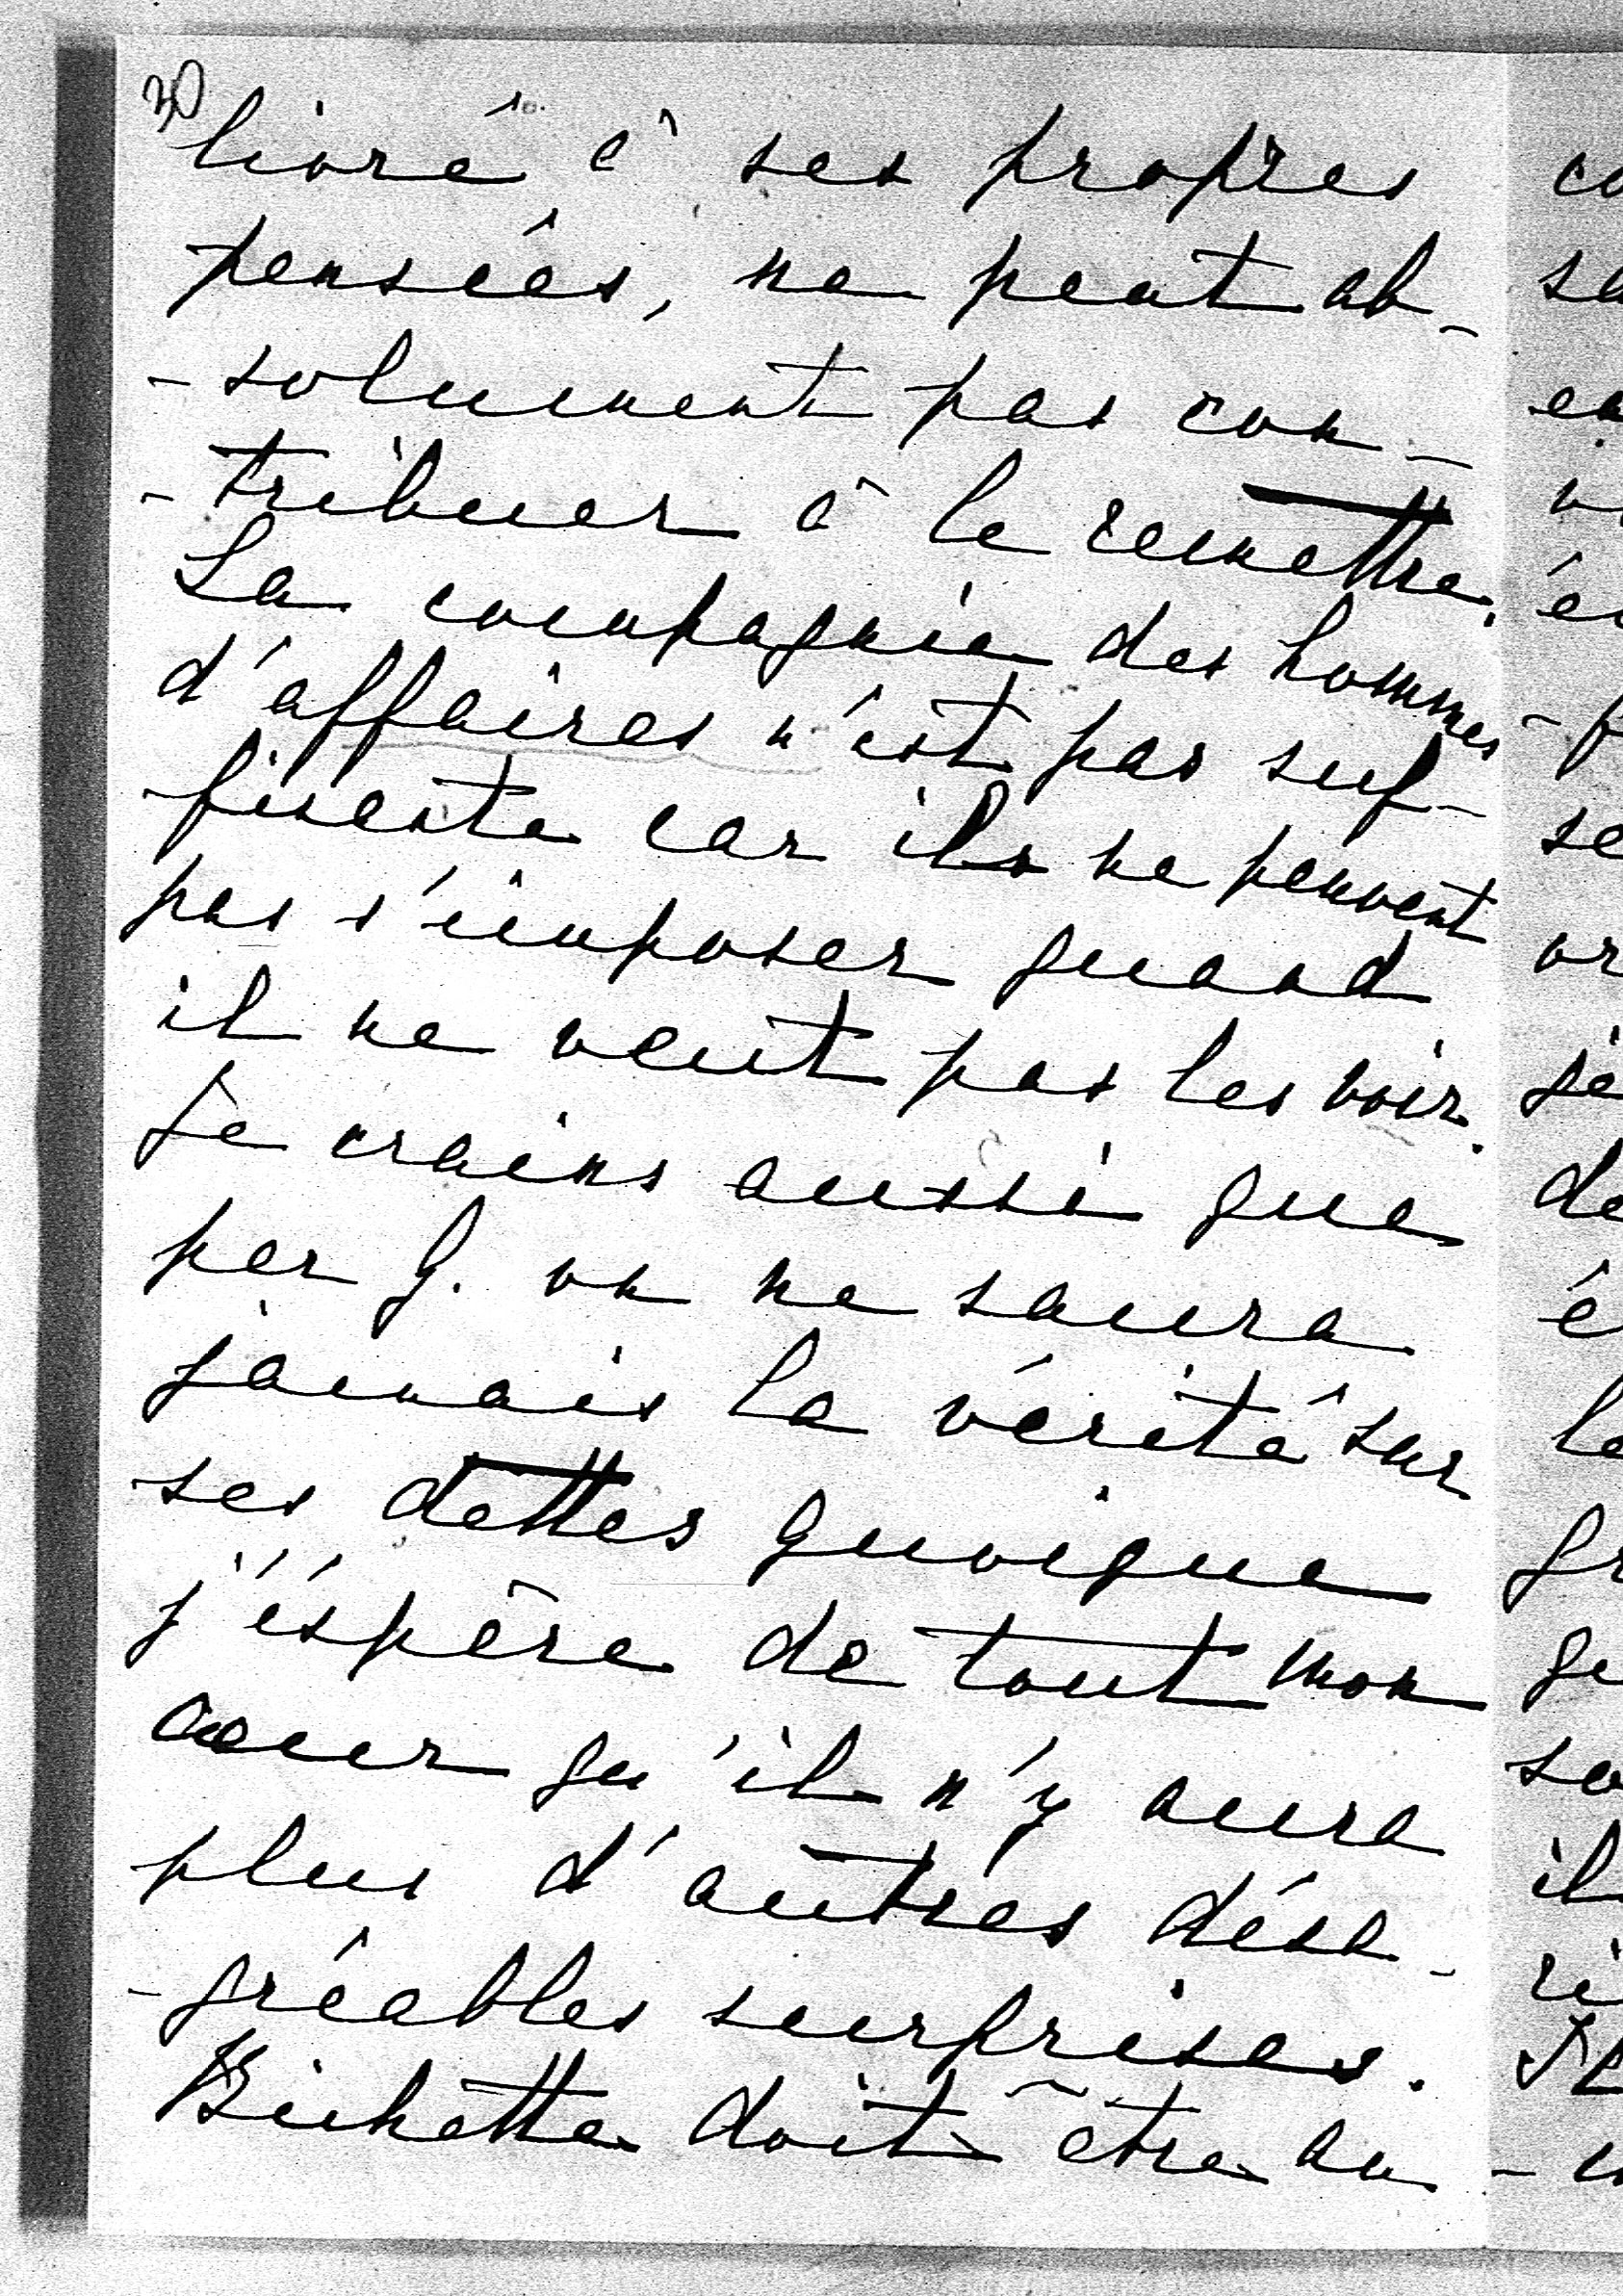 30
livré à ses propres
pensées, ne peut ab-
-solument pas con-
-tribuer à le remettre.
La compagnie des hommes
d'affaires n'est pas suf-
-fisante car ils ne peuvent
pas s'imposer quand
il ne veut pas les voir.
Je crains aussi que
par G. on ne saura
jamais la vérité sur
ses dettes quoique
j'éspère de tout mon
coeur qu'il n'y aura
plus d'autres désa-
-gréables surprises.
doit être au